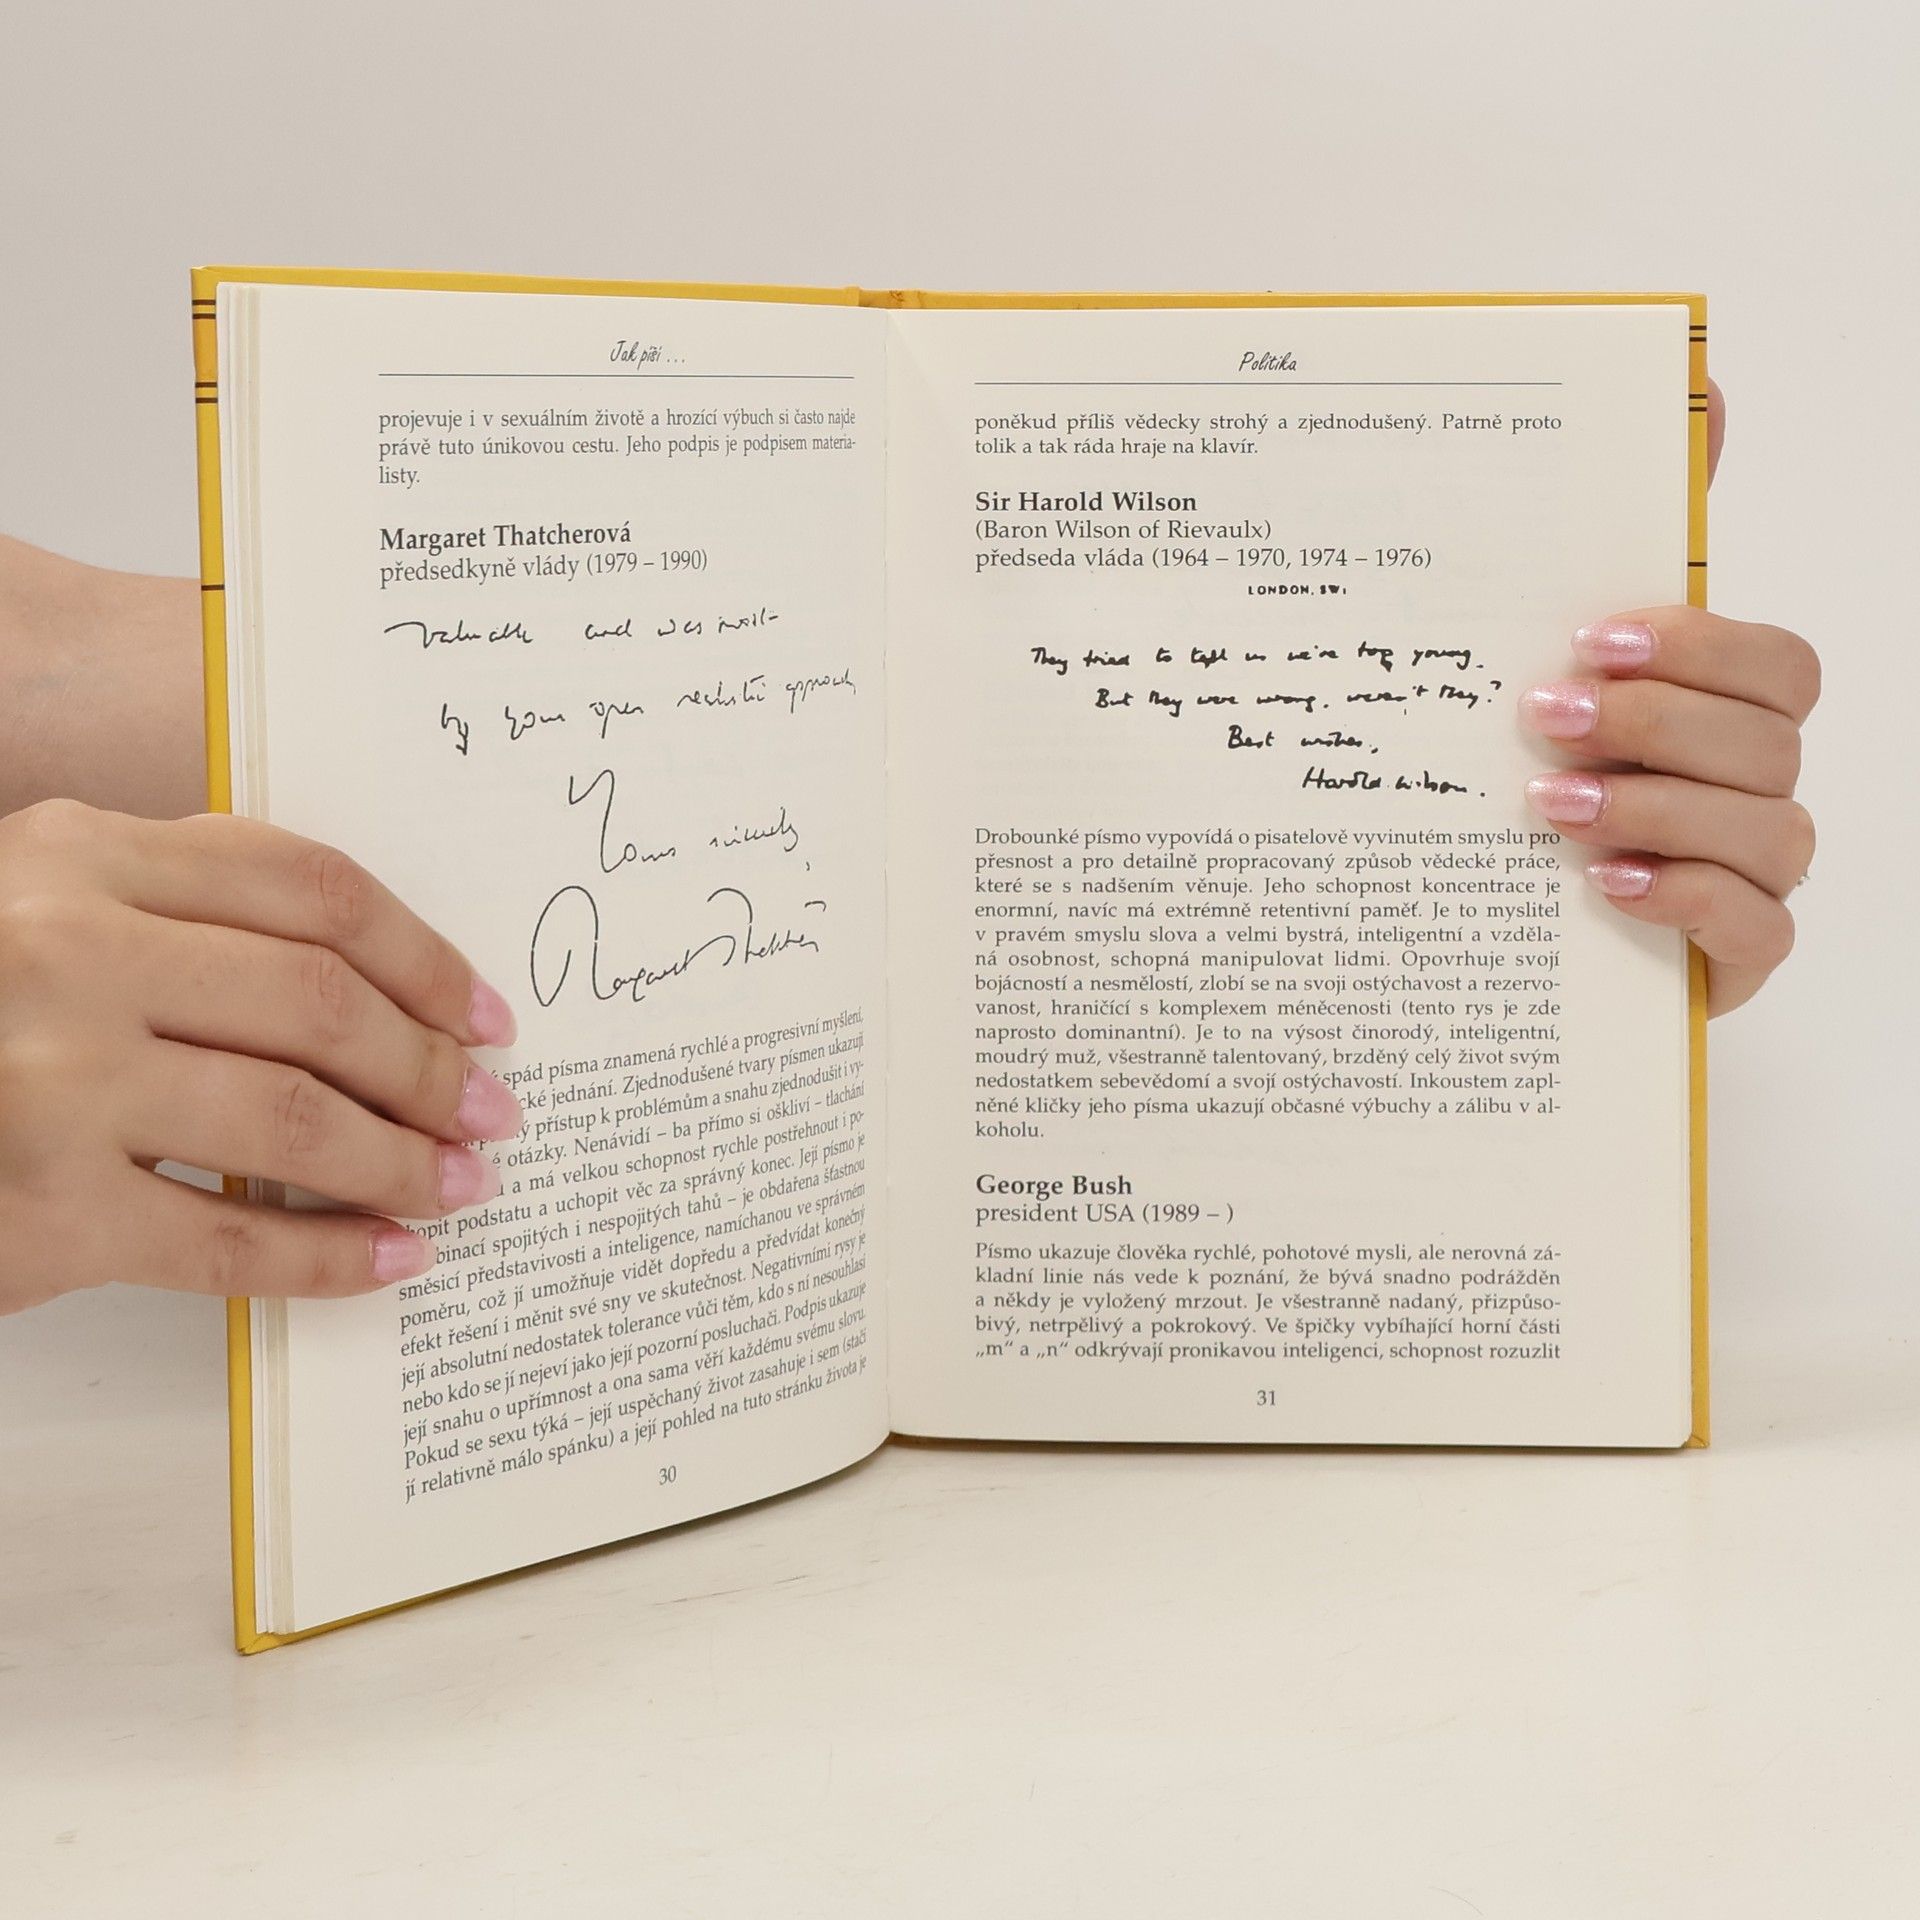 Jak píší ...
projevuje i v sexuálním životě a hrozící výbuch si často najde
právě tuto únikovou cestu. Jeho podpis je podpisem materia-
listy.
Margaret Thatcherová
předsedkyně vlády (1979 – 1990)
Valuable and was most
by your open realistic approach
Yours sincerely
Margaret Thatcher
spád písma znamená rychlé a progresivní myšlení,
cké jednání. Zjednodušené tvary písmen ukazují
přístup k problémům a snahu zjednodušit i vy-
otázky. Nenávidí – ba přímo si oškliví – tlachání
a má velkou schopnost rychle postřehnout i po-
hopit podstatu a uchopit věc za správný konec. Její písmo je
binací spojitých i nespojitých tahů – je obdařena šťastnou
směsicí představivosti a inteligence, namíchanou ve správném
poměru, což jí umožňuje vidět dopředu a předvídat konečný
efekt řešení i měnit své sny ve skutečnost. Negativními rysy je
její absolutní nedostatek tolerance vůči těm, kdo s ní nesouhlasí
nebo kdo se jí nejeví jako její pozorní posluchači. Podpis ukazuje
její snahu o upřímnost a ona sama věří každému svému slovu.
Pokud se sexu týká – její uspěchaný život zasahuje i sem (stačí
jí relativně málo spánku) a její pohled na tuto stránku života je
30
Politika
poněkud příliš vědecky strohý a zjednodušený. Patrně proto
tolik a tak ráda hraje na klavír.
Sir Harold Wilson
(Baron Wilson of Rievaulx)
předseda vláda (1964 – 1970, 1974 – 1976)
LONDON, SW1
They tried to tell us we're too young.
But they were wrong, weren't they?
Best wishes,
Harold Wilson.
Drobounké písmo vypovídá o pisatelově vyvinutém smyslu pro
přesnost a pro detailně propracovaný způsob vědecké práce,
které se s nadšením věnuje. Jeho schopnost koncentrace je
enormní, navíc má extrémně retentivní paměť. Je to myslitel
v pravém smyslu slova a velmi bystrá, inteligentní a vzděla-
ná osobnost, schopná manipulovat lidmi. Opovrhuje svojí
bojácností a nesmělostí, zlobí se na svoji ostýchavost a rezervo-
vanost, hraničící s komplexem méněcenosti (tento rys je zde
naprosto dominantní). Je to na výsost činorodý, inteligentní,
moudrý muž, všestranně talentovaný, brzděný celý život svým
nedostatkem sebevědomí a svojí ostýchavostí. Inkoustem zapl-
něné kličky jeho písma ukazují občasné výbuchy a zálibu v al-
koholu.
George Bush
president USA (1989 – )
Písmo ukazuje člověka rychlé, pohotové mysli, ale nerovná zá-
kladní linie nás vede k poznání, že bývá snadno podrážděn
a někdy je vyložený mrzout. Je všestranně nadaný, přizpůso-
bivý, netrpělivý a pokrokový. Ve špičky vybíhající horní části
„m“ a „n“ odkrývají pronikavou inteligenci, schopnost rozuzlit
31